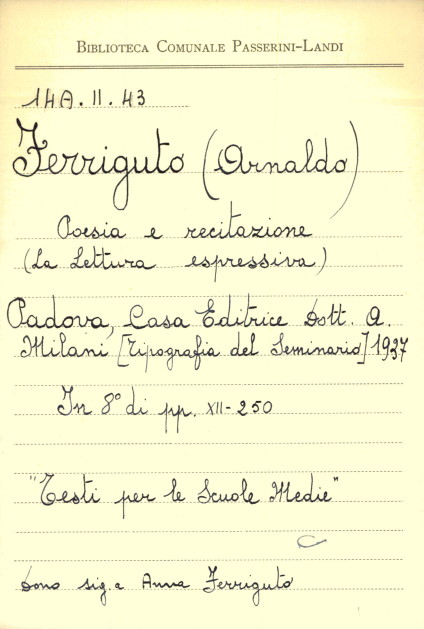 BIBLIOTECA COMUNALE PASSERINI-LANDI
14A.II.43
Ferriguto (Arnaldo)
Poesia e recitazione
(La Lettura espressiva)
Padova, Casa Editrice Dott. A.
Milani [Tipografia del Seminario] 1937
In 8° di pp. XII-250
"Testi per le Scuole Medie"
Dono sig.a Anna Ferriguto